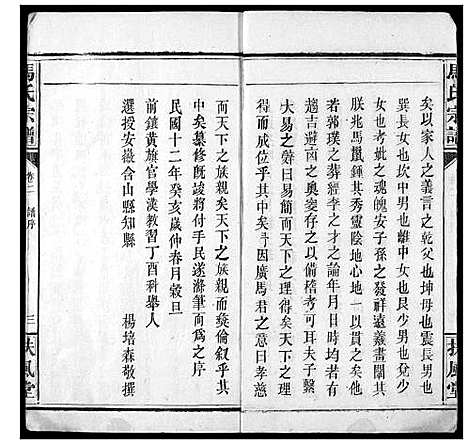 馬氏宗譜
扶風堂
矣以家人之義言之乾父也坤母也震長男也
巽長女也坎中男也離中女也艮少男也兌少
女也考妣之魂魄安子孫之發祥遠羲畫闢其
朕兆馬鬣鍾其秀靈陰地心地一以貫之矣亦
若郭璞之葬經李才之論年月日時均若有
趨吉避㐫之奧姜存之以備稽考可耳夫子繫
大易之辭曰易簡而天下之理得矣天下之理
得而成位乎其中矣吾因廣馬君之意曰孝慈
而天下之族親矣天下之族親而彜倫叙乎其
中矣慕修旣竣將付手民遂滌筆而爲之序
民國十二年癸亥歲仲春月穀旦
前鑲黃旗官學漢教習丁酉科舉人
選授安薇含山縣知縣　楊培森敬撰
馬氏宗譜
卷二　譜序
三
扶風堂